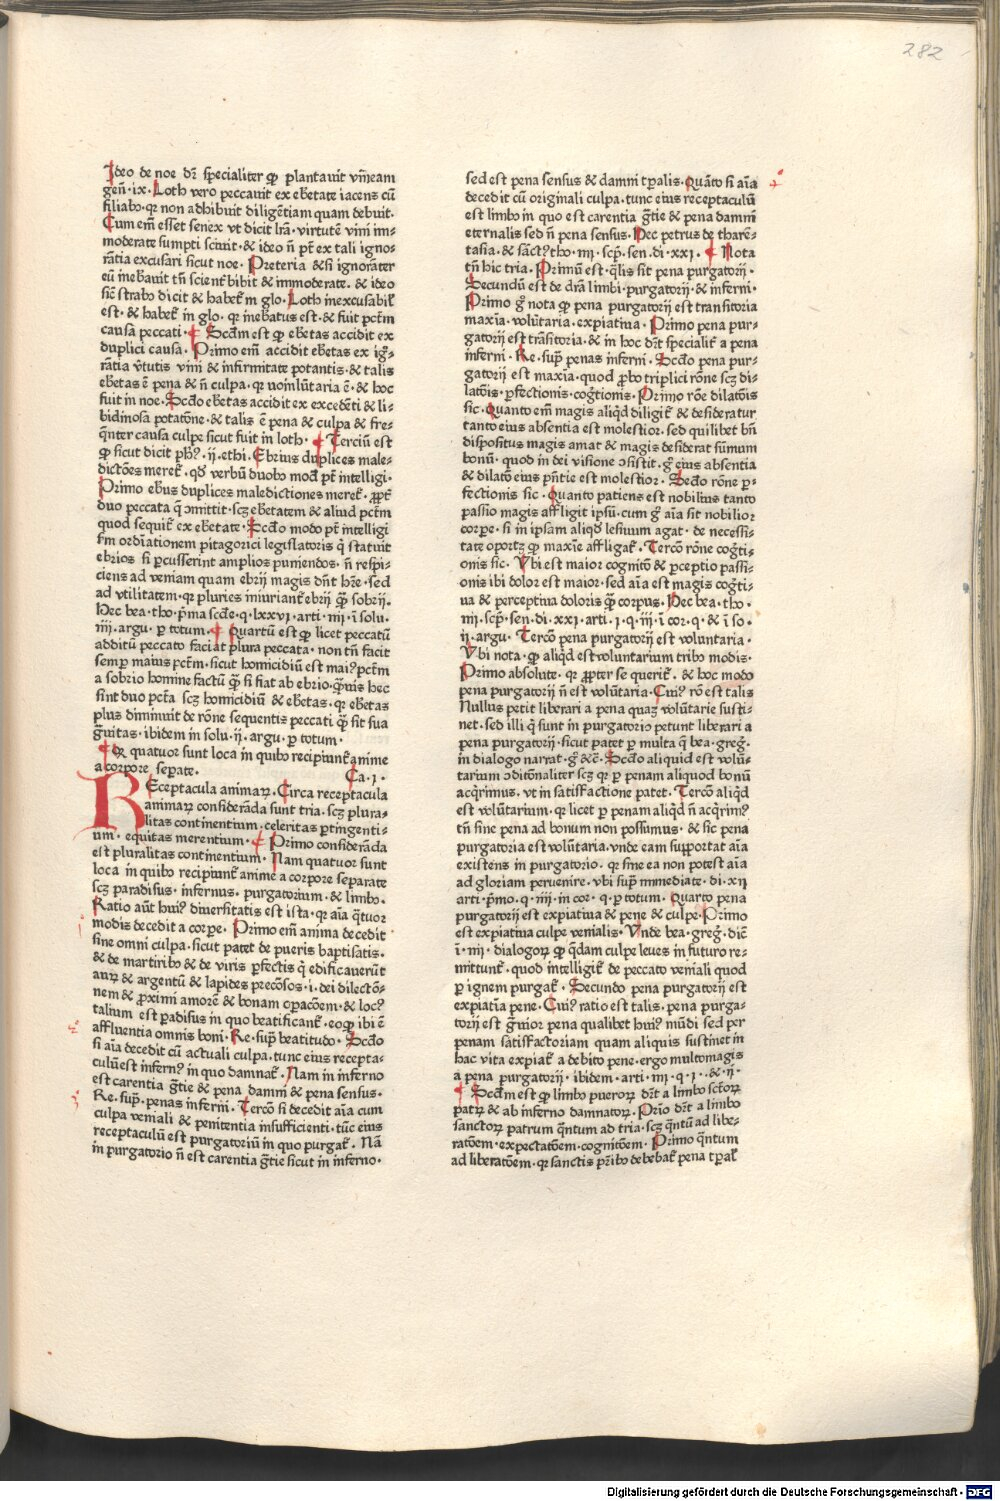 282
Ideo de noe dr̄ specialiter ꝙ plantauit vīneam
gen̄·ix· Loth vero peccauit ex ebetate iacens cū
filiabꝰ·qꝛ non adhibuit diligētiam quam debuit·
Cum em̄ esset senex vt dicit lr̄a· virtutē vini im-
moderate sumpti sciuit·& ideo n̄ pt̄ ex tali igno-
rātia excusari sicut noe· Preteria &si ignorāter
eū inebauit tn̄ scient̄ bibit & immoderate·& ideo
sic̄ strabo dicit & habet̄ in glo· Loth inexcusabil̄
est·& habet̄ in glo·qꝛ inebatus est·& fuit pct̄m
causa peccati· Scd̄m est ꝙ ebetas accidit ex
duplici causa· Primo em̄ accidit ebetas ex igr̄o-
rātia v̄tutis vini & infirmitate potantis·& talis
ebetas ē pena & n̄ culpa·qꝛ uoīnlūtaria ē·& hoc
fuit in noe· Scd̄o ebetas accidit ex excedēti & li-
bidinosa potatōne·& talis ē pena & culpa & fre-
qn̄ter causa culpe sicut fuit in loth· Terciū est
ꝙ sicut dicit ph̄s·ij·ethi· Ebrius duplices male-
dictōes meret̄·qd̄ verbū duobꝰ mod̄ pt̄ intelligi·
Primo ebꝰus duplices maledictiones meret̄·ꝓpt̄
duo peccata q̄ ꝯmittit·scꝫ ebetatem & aliud pct̄m
quod sequit̄ ex ebetate· Scd̄o modo pt̄ intelligi
sm̄ ordīationem pitagorici legislatoris q̄ statuit
ebrios si ꝑcusserint amplioꝰ puniendos·n̄ respi-
ciens ad veniam quam ebrij magis dn̄t hr̄e·sed
ad vtilitatem·qꝛ pluries iniuriant̄ ebrij ꝙ̄ sobrij·
Hec bea·tho·pr̄ma scd̄e·q·lxxvi·arti·iiij·ī solu·
iiij·argu·ꝑ totum· Quartū est ꝙ licet peccatū
additū peccato faciat plura peccata·non tn̄ facit
semꝑ maius pct̄m·sicut homicidiū est maiꝰ pct̄m
a sobrio homine factū ꝙ̄ si fiat ab ebrio·ꝙ̄uis hec
sint duo pct̄a scꝫ homicidiū & ebetas·qꝛ ebetas
plus diminuit de rōne sequentis peccati ꝙ̄ sit sua
gr̄uitas·ibidem in solu·ij·argu·ꝑ totum·
Qꝛ quatuor sunt loca in quibꝰ recipiunt̄ anime
a corpore seꝑate· Ca·i·
Receptacula animaꝝ· Circa receptacula
animaꝝ considerāda sunt tria·scꝫ plura-
litas continentium·celeritas ꝑtingenti-
um·equitas merentium· Primo considerāda
est pluralitas continentium· Nam quatuor sunt
loca in quibꝰ recipiunt̄ anime a corpore separate
scꝫ paradisus·infernus·purgatorium·& limbꝰ·
Ratio aūt huiꝰ diuersitatis est ista·qꝛ aīa qͣtuor
modis decedit a corpe· Primo em̄ anima decedit
sine omni culpa·sicut patet de pueris baptisatis·
& de martiribꝰ & de viris ꝑfectis q̄ edificauerūt
auꝝ & argentū & lapides precōsos·i·dei dilectō-
nem & ꝓximi amorē & bonam oꝑacōem·& locꝰ
talium est ꝑadisus in quo beatificant̄·eoꝙ ibi ē
affluentia omnis boni· Re·supͣ·beatitudo· Scd̄o
si aīa decedit cū actuali culpa·tunc eius recepta-
culū est infernꝰ in quo damnat̄· Nam in inferno
est carentia gr̄tie & pena damni & pena sensus·
Re·supͣ·penas inferni· Tercō si decedit aīa cum
culpa veniali & penitentia insufficienti·tūc eius
receptaculū est purgatoriū in quo purgat̄· Nā
in purgatorio n̄ est carentia gr̄tie sicut in inferno·
sed est pena sensus & damni tꝑalis· Quāto si aīa
decedit cū originali culpa·tunc eius receptaculū
est limbꝰ in quo est carentia gr̄tie & pena damni
eternalis sed n̄ pena sensus· Hec petrus de tharē-
tasia·& sāctꝰ tho·iiij·scp̄·sen·di·xxi· Nota
tn̄ hic tria· Primū est·qͣlis sit pena purgatorij·
Secundū est de dr̄a limbi·purgatorij·& inferni·
Primo gͦ nota ꝙ pena purgatorij est transitoria
maxīa·volūtaria·expiatiua· Primo pena pur-
gatorij est trāsitoria·& in hoc dr̄t specialit̄ a pena
inferni· Re·supͣ penas inferni· Scd̄o pena pur-
gatorij est maxīa·quod ꝓbo triplici rōne scꝫ di-
latōis·ꝑfectionis·cogͣtionis· Primo rōne dilatōis
sic· Quanto em̄ magis aliqͥd diligit̄ & desideratur
tanto eius absentia est molestior·sed quilibet bn̄
dispositus magis amat & magis desiderat sūmum
bonū·quod in dei visione ꝯsistit·gͦ eius absentia
& dilatō eius pn̄tie est molestior· Scd̄o rōne ꝑ-
fectionis sic· Quanto patiens est nobilius tanto
passio magis affligit ipsū·cum gͦ aīa sit nobilior
corpe·si in ipsam aliqͥd lesiuum agat·de necessi-
tate oportꝫ ꝙ maxīe affligat̄· Tercō rōne cogͣti-
onis sic· Vbi est maior cognitō & ꝑceptio passi-
onis ibi dolor est maior·sed aīa est magis cogͣti-
ua & perceptiua doloris ꝙ̄ corpus· Hec bea·tho·
iiij·scp̄·sen·di·xxi·arti·i·q·iij·ī cor·q·& ī so·
ij·argu· Tercō pena purgatorij est voluntaria·
Vbi nota·ꝙ aliqͥd est voluntarium tribꝰ modis·
Primo absolute·qꝛ ꝓpter se querit̄·& hoc modo
pena purgatorij n̄ est volūtaria· Cuiꝰ rō est talis
Nullus petit liberari a pena quaꝫ volūtarie susti-
net·sed illi q̄ sunt in purgatorio petunt liberari a
pena purgatorij·sicut patet ꝑ multa q̄ bea·greḡ·
in dialogo narrat·gͦ &c̄· Scd̄o aliquid est volū-
tarium ꝯditōnaliter scꝫ qꝛ ꝑ penam aliquod bonū
acqͥrimus·vt in satisfactione patet· Tercō aliqͥd
est volūtarium·qꝛ licet ꝑ penam aliqͥd n̄ acqͥrimꝰ
tn̄ sine pena ad bonum non possumus·& sic pena
purgatoria est volūtaria·vnde eam supportat aīa
existens in purgatorio·qꝛ sine ea non potest aīa
ad gloriam peruenire·vbi supͣ immediate·di·xxi
arti·pͥmo·q·iiij·in cor·q·ꝑ totum· Quarto pena
purgatorij est expiatiua & pene & culpe· Primo
est expiatiua culpe venialis· Vnde bea·greḡ·dic̄
ī·iiij·dialogoꝝ ꝙ qͣdam culpe leues in futuro re-
mittunt̄·quod intelligit̄ de peccato veniali quod
ꝑ ignem purgat̄· Secundo pena purgatorij est
expiatīa pene· Cuiꝰ ratio est talis·pena purga-
torij est gͣuior pena qualibet huiꝰ mūdi sed per
penam satisfactoriam quam aliquis sustinet in
hac vita expiat̄ a debito pene·ergo multomagis
a pena purgatorij·ibidem·arti·iiij·q·i·&·ij·
Scd̄m est ꝙ limbꝰ pueroꝝ dr̄t a limbo sct̄oꝝ
patꝝ & ab inferno damnatoꝝ· Prīo dr̄t a limbo
sanctoꝝ patrum qͣntum ad tria·scꝫ qͣntū ad libe-
ratōem·expectatōem·cognitōem· Primo qͣntum
ad liberatōem·qꝛ sanctis pr̄ibꝰ debebat̄ pena tꝑal̄
Digitalisierung gefördert durch die Deutsche Forschungsgemeinschaft · DFG